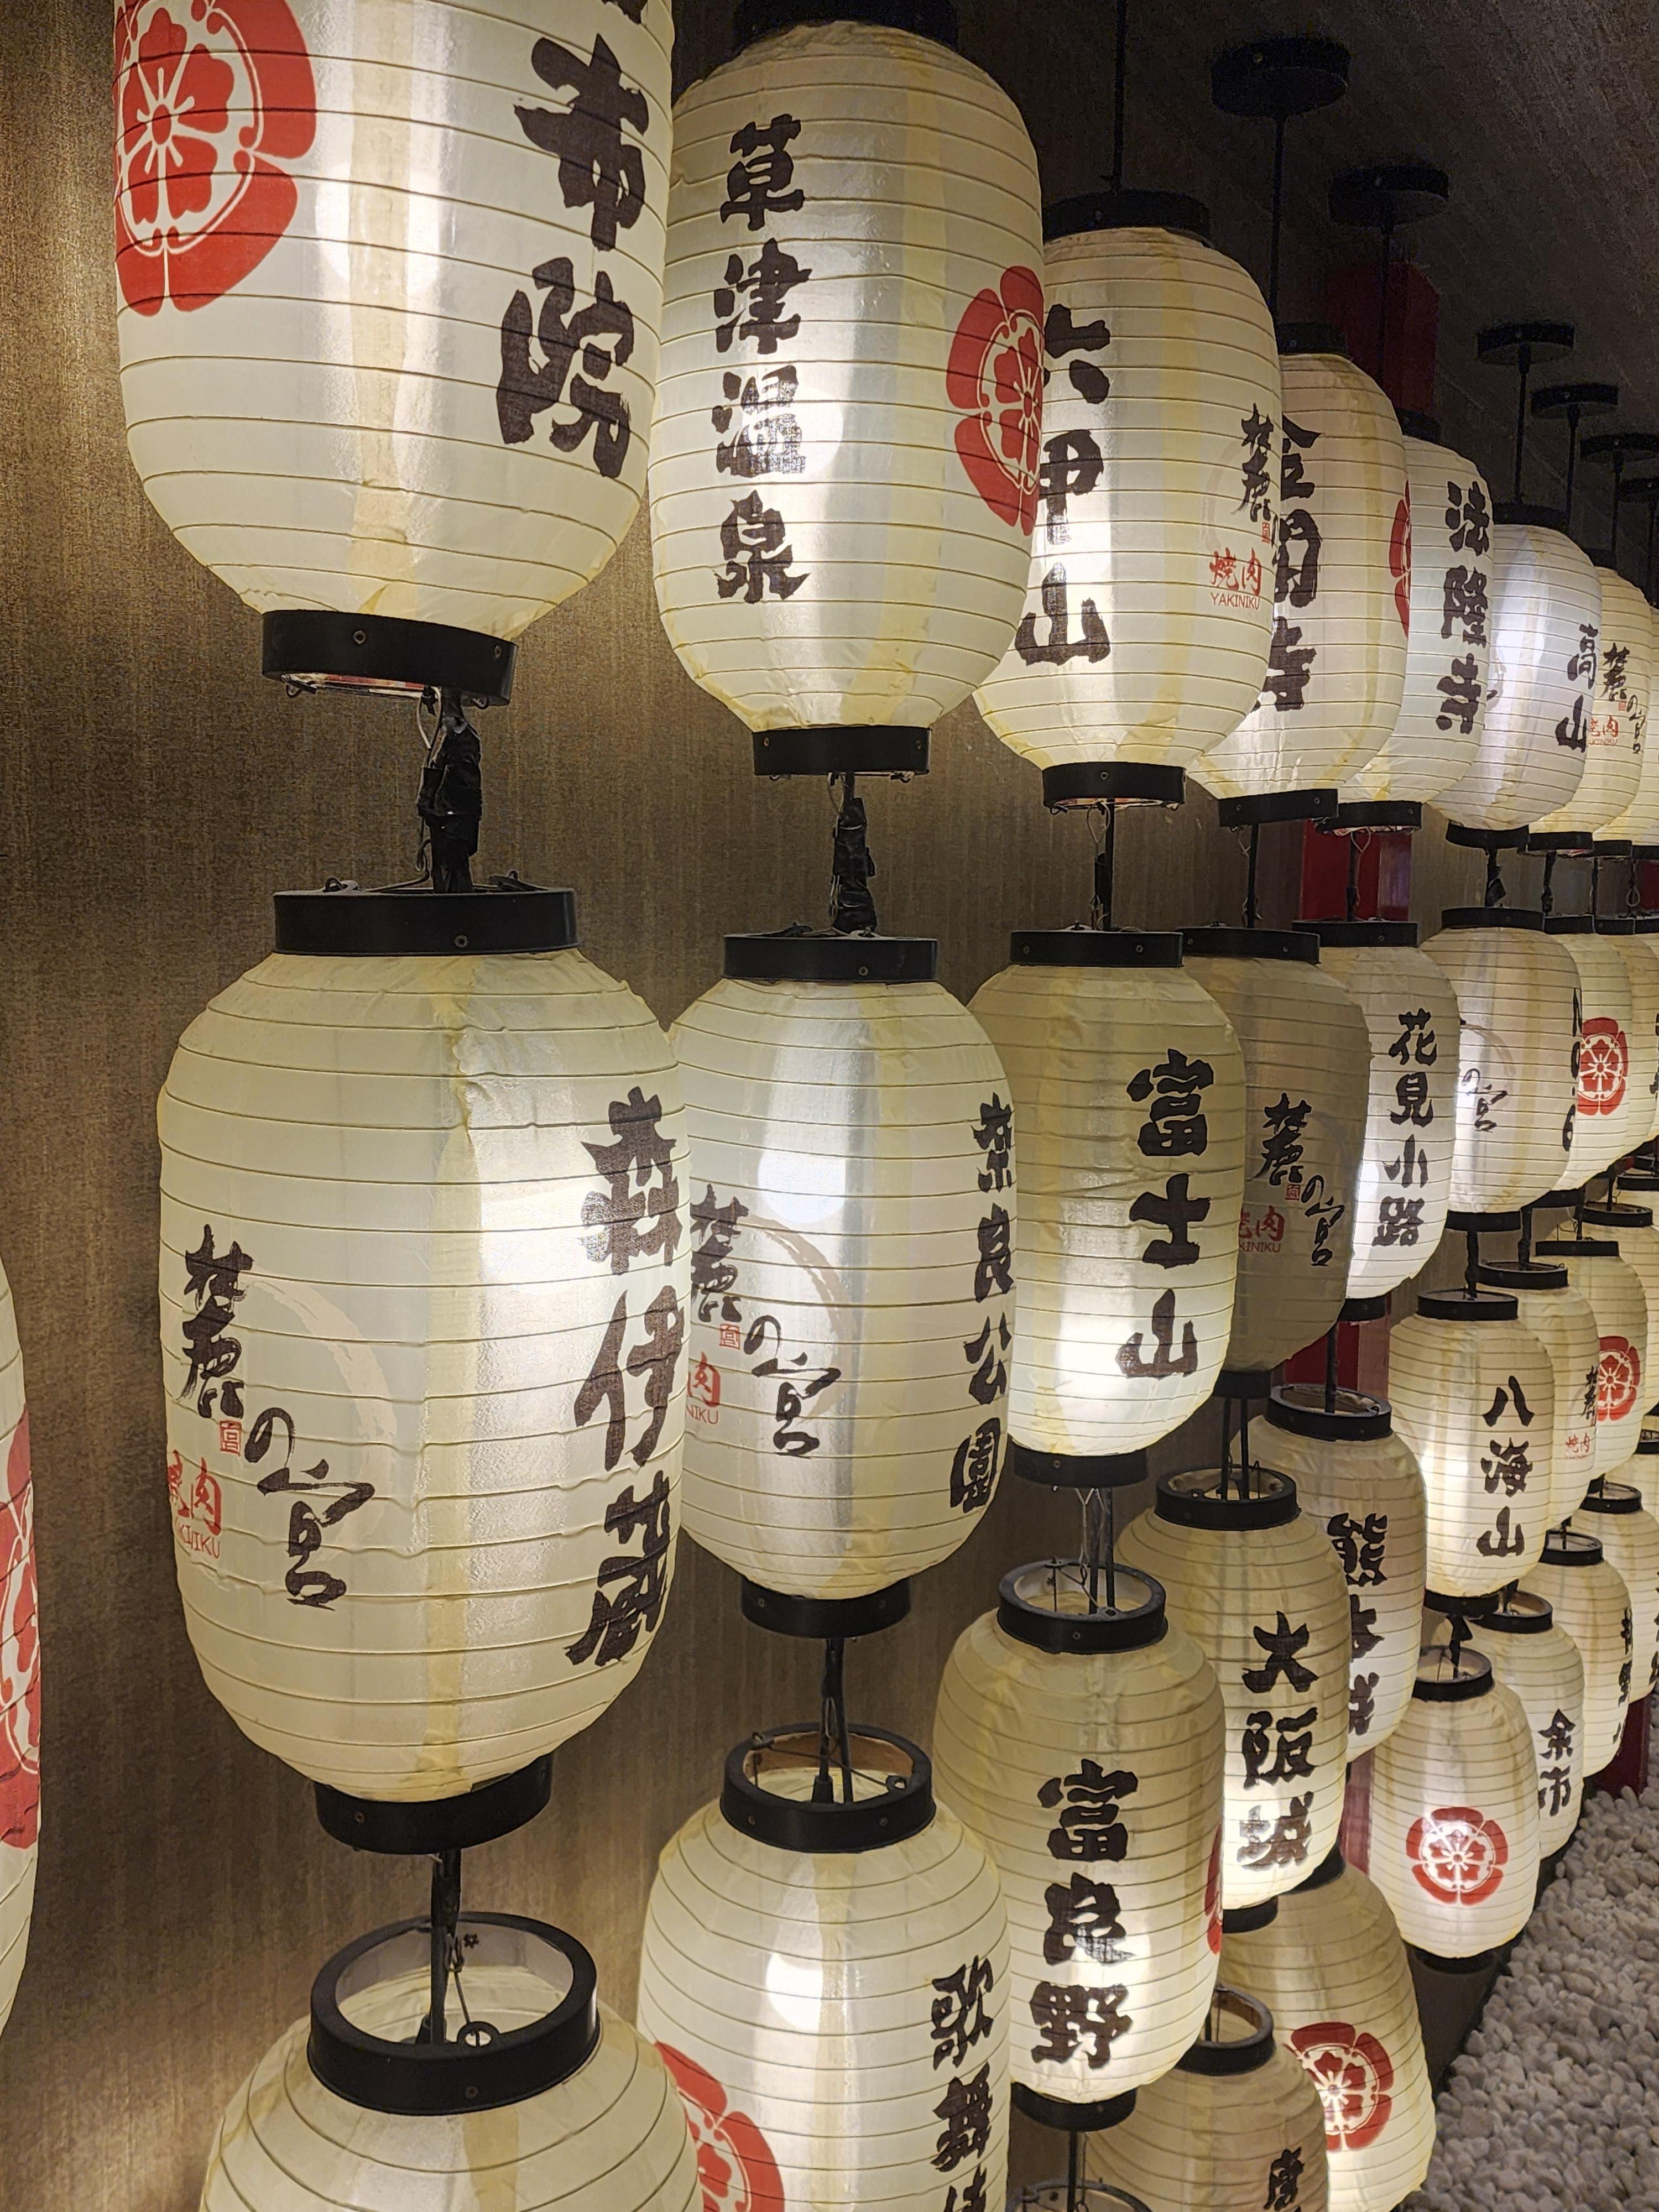 布院
草津温泉
六甲山
麓
焼肉
YAKINIKU
金閣寺
法隆寺
高山
麓の宮
焼肉
森伊蔵
麓の宮
焼肉
YAKINIKU
奈良公園
麓の宮
肉
NIKU
富士山
麓の宮
焼肉
KINIKU
花見小路
の宮
八海山
麓
焼肉
熊本城
大阪城
富良野
余市